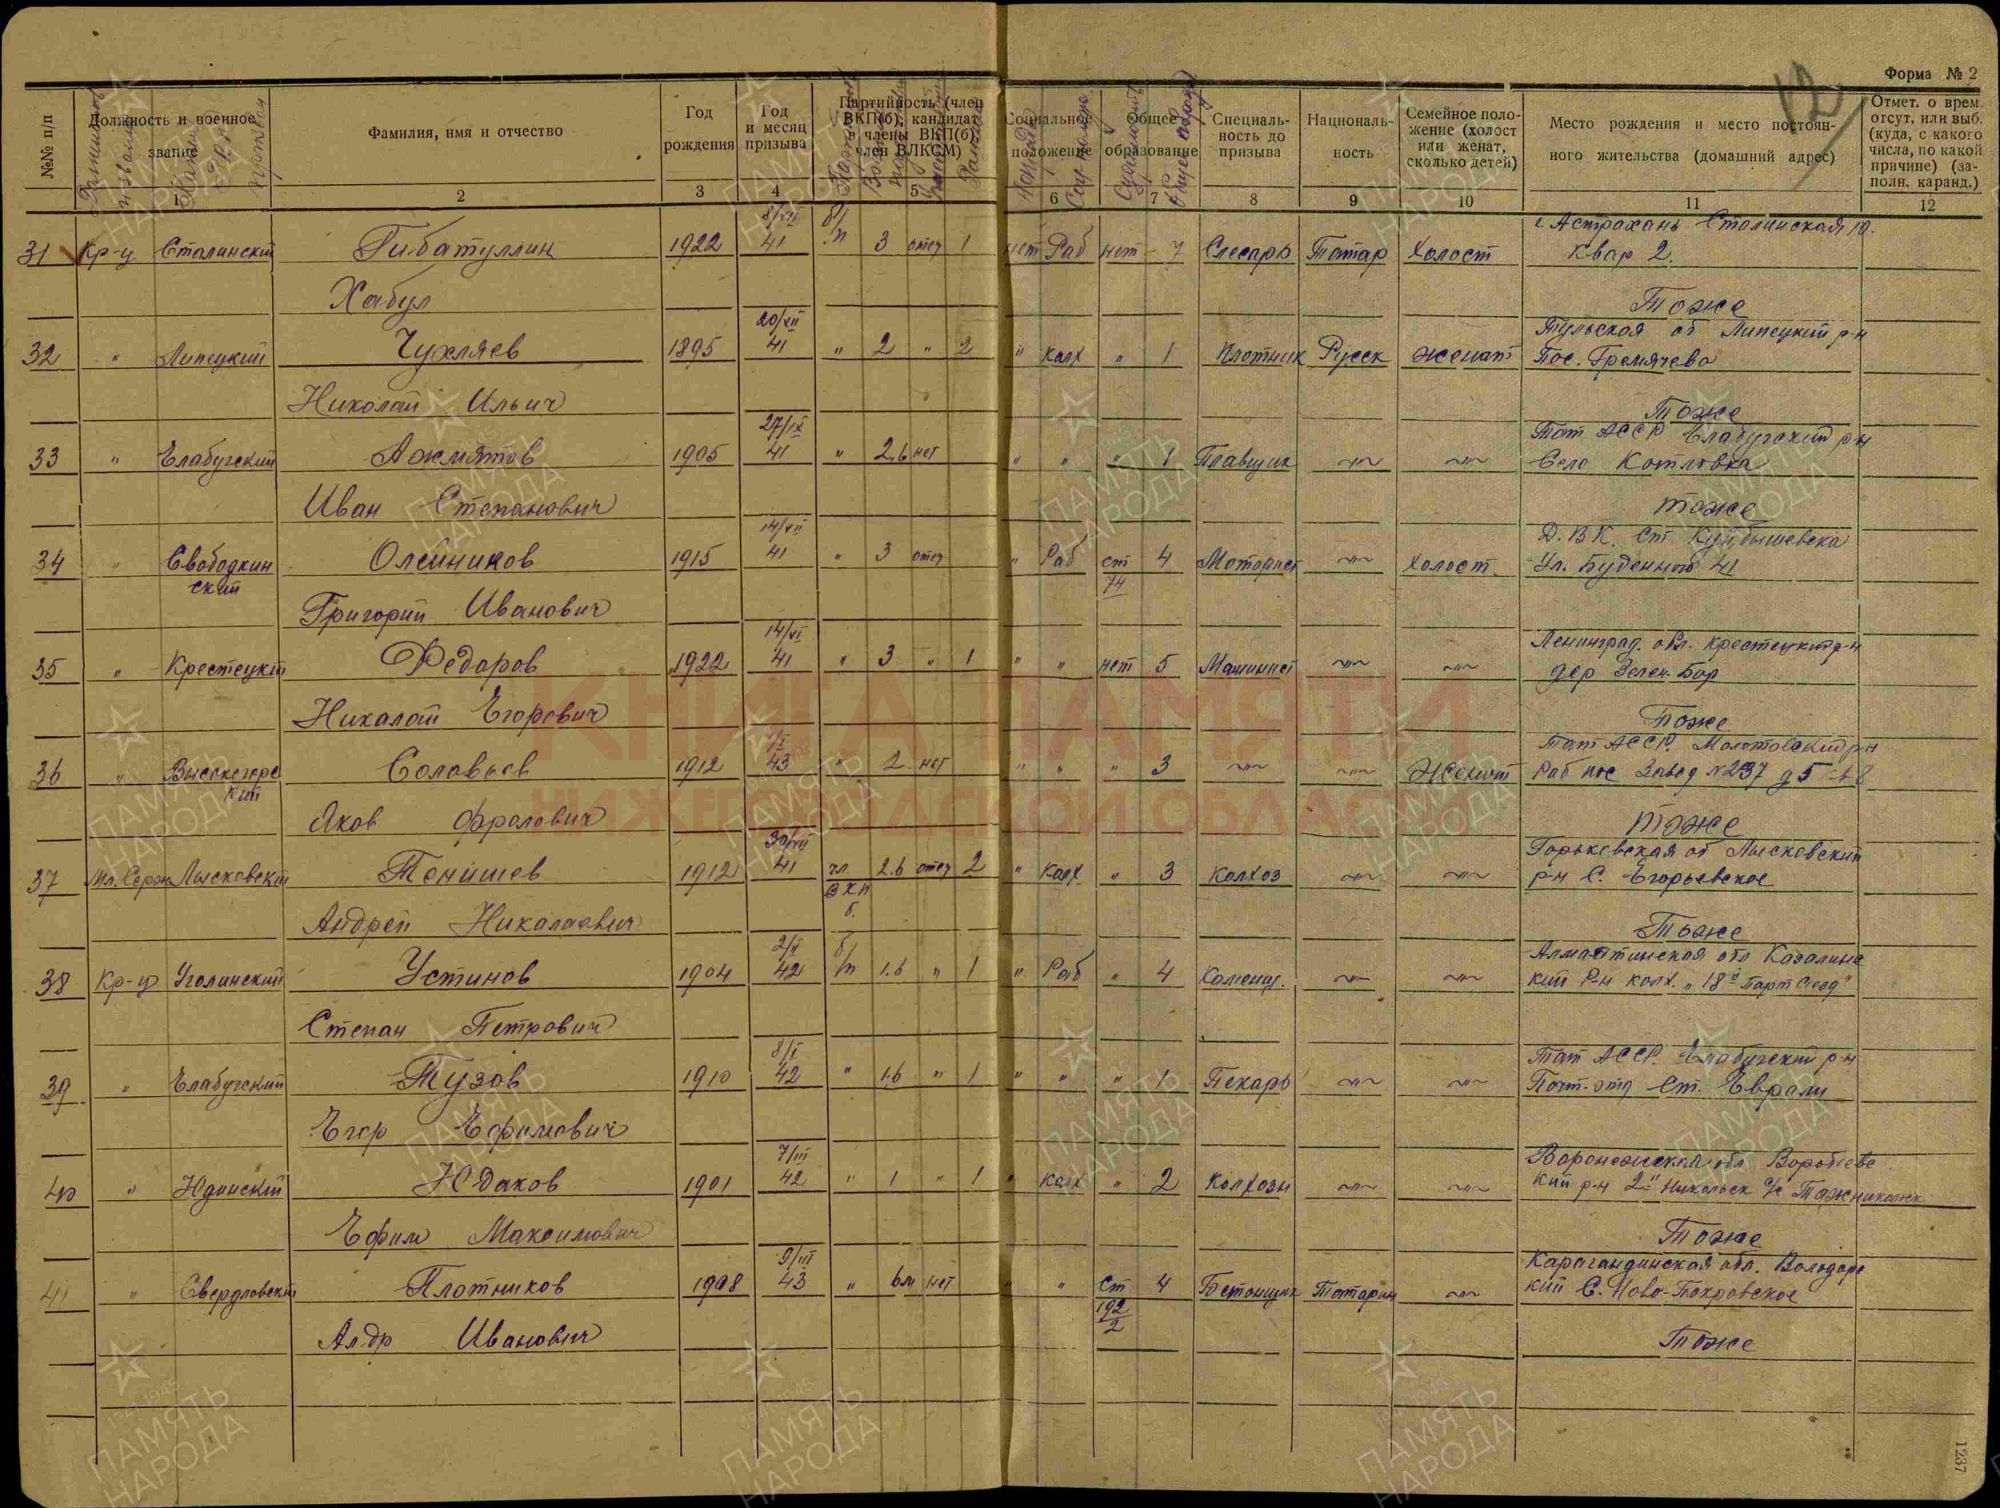 Форма № 2
12
№№ п/п
Должность и военное звание
Фамилия, имя и отчество
Год рождения
Год и месяц призыва
Партийность (член ВКП(б), кандидат в члены ВКП(б) член ВЛКСМ)
Социальное положение
Общее образование
Специаль-ность до призыва
Националь-ность
Семейное поло-жение (холост или женат, сколько детей)
Место рождения и место постоян-ного жительства (домашний адрес)
Отмет. о врем. отсут. или выб. (куда, с какого числа, по какой причине) (за-полн. каранд.)
1 2 3 4 5 6 7 8 9 10 11 12
г. Астрахань Сталинская 10.
31 Кр-ц Сталинский Гибатуллин 1922 8/XII 41 б/п 3 отеч 1 нет Раб нет 7 Слесарь Татар Холост Квар 2.
Хабул Тоже
Тульская об Липецкий р-н
32 " Липецкий Чухляев 1895 20/XII 41 " 2 " 2 " колх " 1 Плотник Русск женат Пос. Гремячево
Николай Ильич Тоже
Тат АССР Елабугский р-н
33 " Елабугский Ажмятов 1905 27/IX 41 " 2,6 нет " " " 1 Плавщик -"- -"- Село Котловка
Иван Степанович Тоже
Д. В К. Ст Куйбышевска
34 " Свободкин ский Олейников 1915 14/VII 41 " 3 отеч " Раб ст 74 4 Моторист -"- Холост Ул. Буденного 41
Григорий Иванович
Ленинград. обл. Крестецкий р-н
35 " Крестецкий Федоров 1922 14/VI 41 " 3 " 1 " " нет 5 Машинист -"- -"- дер Зелен. Бор
Николай Егорович Тоже
Тат АССР. Молотовский р-н
36 " Высокогорс кий Соловьев 1912 43 " 2 нет " " " 3 -"- -"- Женат Раб пос Завод №237 д 5
Яков Фролович Тоже
Горьковская об Лысковский
37 Мл. Серж Лысковский Тенишев 1912 30/VII 41 чл ВКП б. 2.6 отеч 2 " Колх " 3 Колхоз -"- -"- р-н С. Егорьевское
Андрей Николаевич Тоже
Алмаатинская обл Казалинс
38 Кр-ц Уголинский Устинов 1904 2/V 42 б/п 1.6 " 1 " Раб " 4 Каменщ. -"- -"- кий Р-н колх. „18й Парт Сезд"
Степан Петрович
Тат АССР. Елабугский р-н
39 " Елабугский Тузов 1910 8/I 42 " 1.6 " 1 " " " 1 Пекарь -"- -"- Почт. отд Ст. Еврали
Егор Ефимович
Воронежская обл Воробьевс
40 " Юдинский Юдаков 1901 7/III 42 " 1 " 1 " Колх " 2 Колхозн -"- -"- кий р-н 2й Никольск
Ефим Максимович Тоже
Карагандинская обл. Володарс
41 " Свердловский Плотников 1908 9/III 43 " 6м нет " " Ст 192/2 4 Бетонщик Татарин -"- кий С. Ново-Покровское
Ал-др Иванович Тоже
1237
КНИГА ПАМЯТИ
НИЖЕГОРОДСКОЙ ОБЛАСТИ
ПАМЯТЬ
НАРОДА